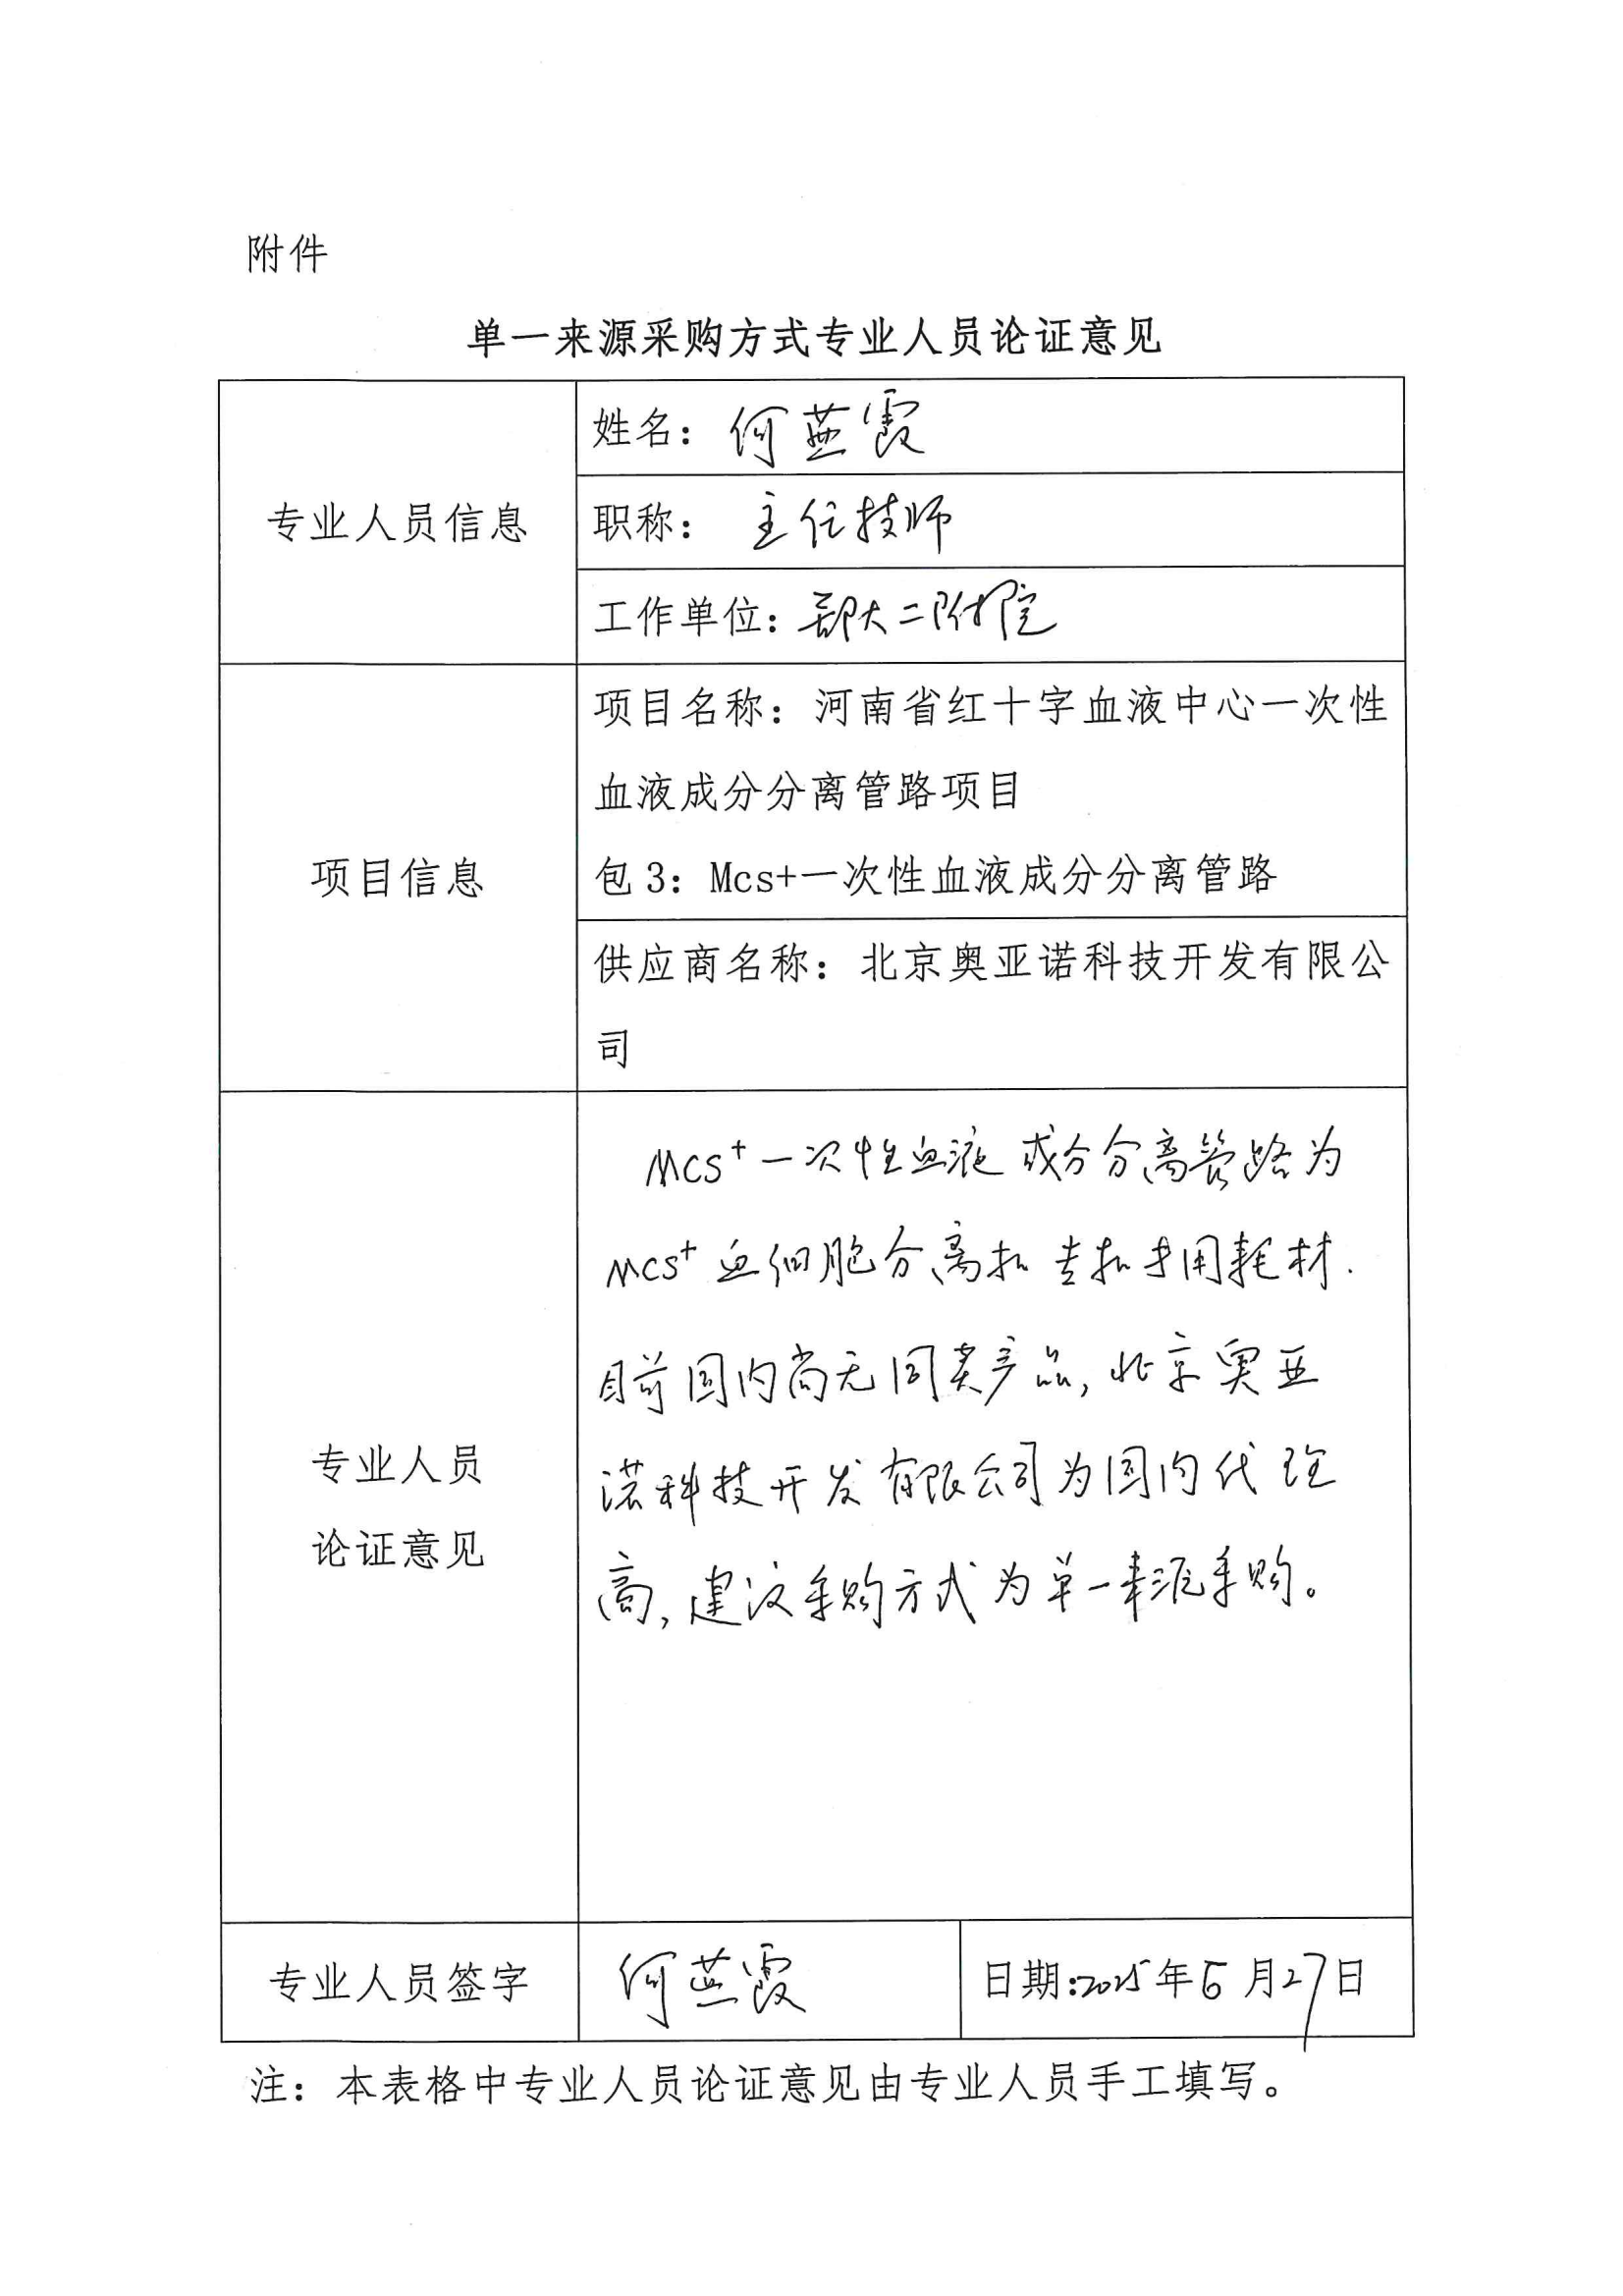 附件
单一来源采购方式专业人员论证意见
专业人员信息
姓名：何燕霞
职称：主任技师
工作单位：郑大二附院
项目信息
项目名称：河南省红十字血液中心一次性
血液成分分离管路项目
包3：Mcs+一次性血液成分分离管路
供应商名称：北京奥亚诺科技开发有限公
司
专业人员
论证意见
MCS+一次性血液成分分离管路为
MCS+血细胞分离机专机专用耗材.
目前国内尚无同类产品,北京奥亚
诺科技开发有限公司为国内代理
商,建议采购方式为单一来源采购。
专业人员签字
何燕霞
日期:2025年6月27日
注：本表格中专业人员论证意见由专业人员手工填写。